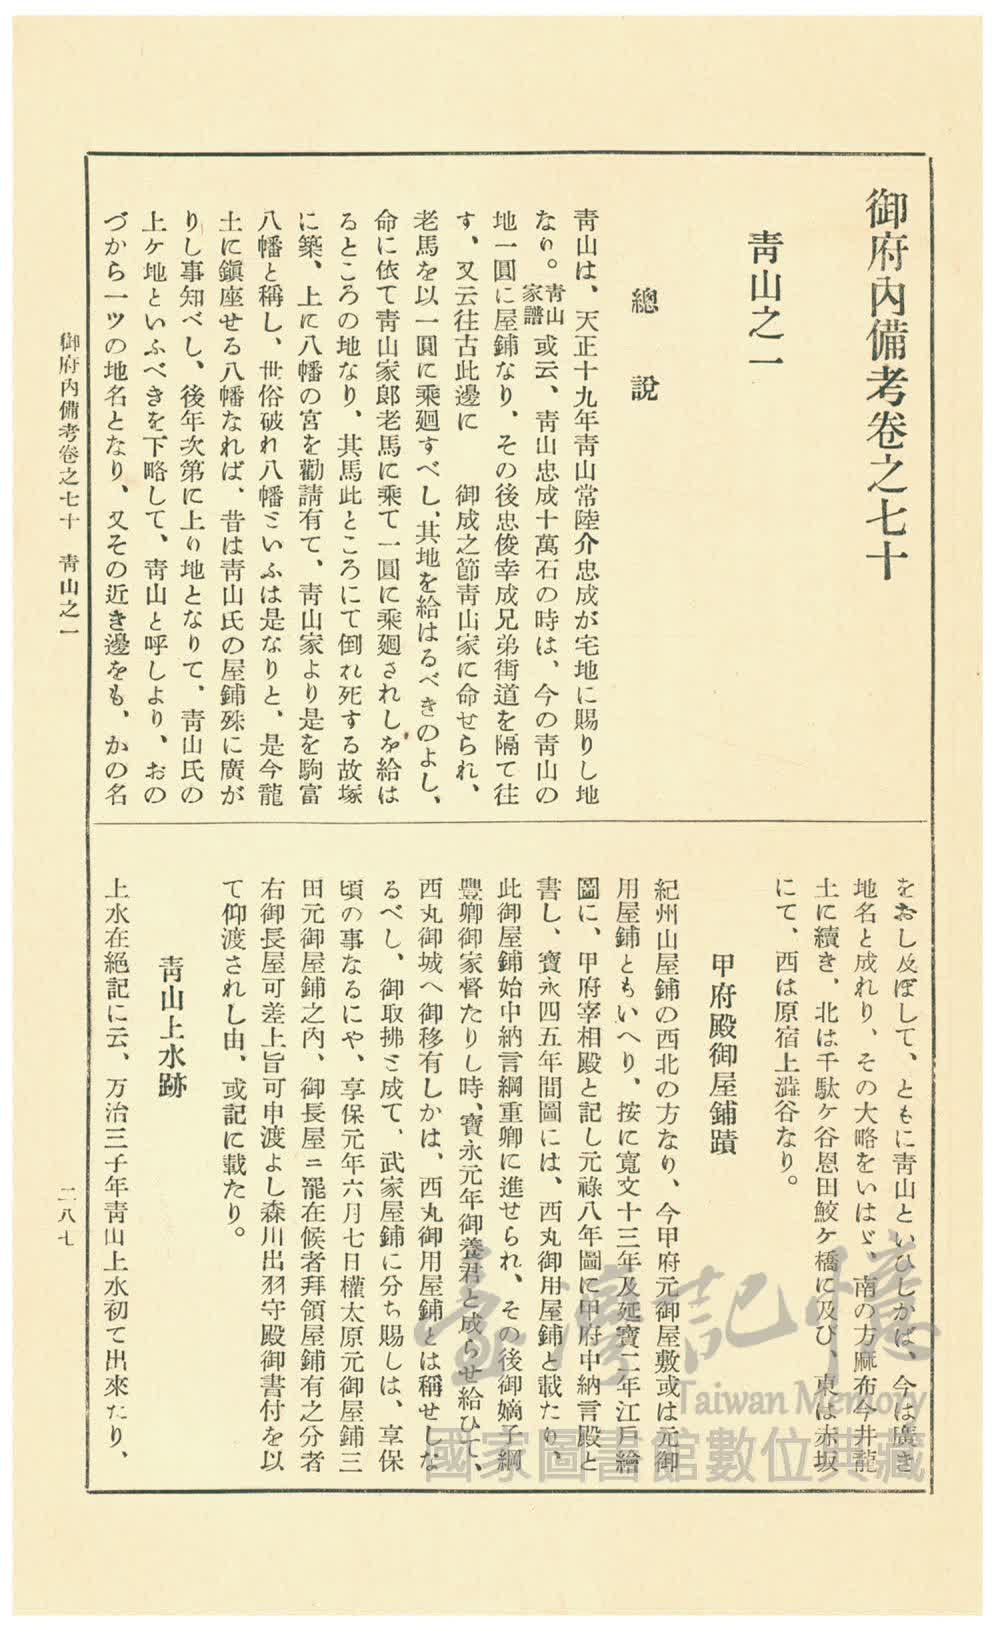 御府內備考卷之七十
靑山之一
總說
靑山は、天正十九年靑山常陸介忠成が宅地に賜りし地
なり。靑山家譜或云、靑山忠成十萬石の時は、今の靑山の
地一圓に屋鋪なり、その後忠俊幸成兄弟街道を隔て住
す、又云往古此邊に　御成之節靑山家に命せられ、
老馬を以一圓に乘廻すべし、其地を給はるべきのよし、
命に依て靑山家郎老馬に乘て一圓に乘廻されしを給は
るところの地なり、其馬此ところにて倒れ死する故塚
に築、上に八幡の宮を勸請有て、靑山家より是を駒富
八幡と稱し、世俗破れ八幡ミいふは是なりと、是今龍
土に鎭座せる八幡なれば、昔は靑山氏の屋鋪殊に廣が
りし事知べし、後年次第に上り地となりて、靑山氏の
上ケ地といふべきを下略して、靑山と呼しより、おの
づから一ツの地名となり、又その近き邊をも、かの名
をおし及ぼして、ともに靑山といひしかば、今は廣き
地名と成れり、その大略をいはゞ、南の方麻布今井龍
土に續き、北は千駄ケ谷恩田鮫ケ橋に及び、東は赤坂
にて、西は原宿上澁谷なり。
甲府殿御屋鋪蹟
紀州山屋鋪の西北の方なり、今甲府元御屋敷或は元御
用屋鋪ともいへり、按に寬文十三年及延寶二年江戶繪
圖に、甲府宰相殿と記し元祿八年圖に甲府中納言殿と
書し、寶永四五年間圖には、西丸御用屋鋪と載たり、
此御屋鋪始中納言綱重卿に進せられ、その後御嫡子綱
豐卿御家督たりし時、寶永元年御養君と成らせ給ひて、
西丸御城へ御移有しかは、西丸御用屋鋪とは稱せしな
るべし、御取拂ミ成て、武家屋鋪に分ち賜しは、享保
頃の事なるにや、享保元年六月七日權太原元御屋鋪三
田元御屋鋪之內、御長屋ニ罷在候者拜領屋鋪有之分者
右御長屋可差上旨可申渡よし森川出羽守殿御書付を以
て仰渡されし由、或記に載たり。
靑山上水跡
上水在絕記に云、万治三子年靑山上水初て出來たり、
御府內備考卷之七十　靑山之一
二八七
臺灣記憶
Taiwan Memory
國家圖書館數位典藏